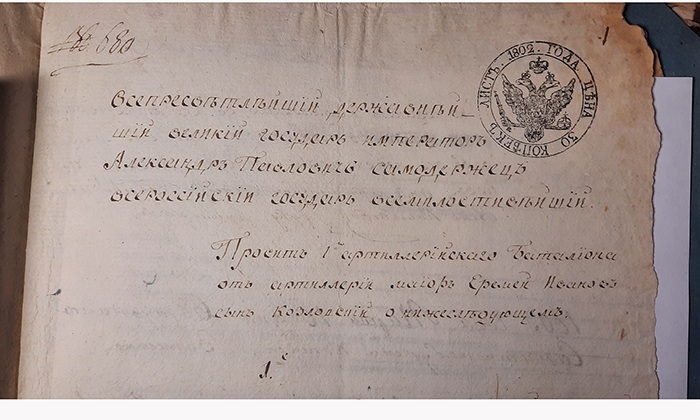 № 680
1
ЛИСТЪ. 1802. ГОДА ЦѢНА 30 КОПѢЕКЪ
Всепресвѣтлѣйшiй державнѣй_
шiй великiй государь императоръ
Александръ Павловичь самодержецъ
всероссiйскiй государь всемилостивѣйшiй.
Проситъ 1го артиллерiйскаго баталiона
отъ артиллерiи маiоръ Еремей Ивановъ
сынъ о нижеслѣдующемъ.
1.е